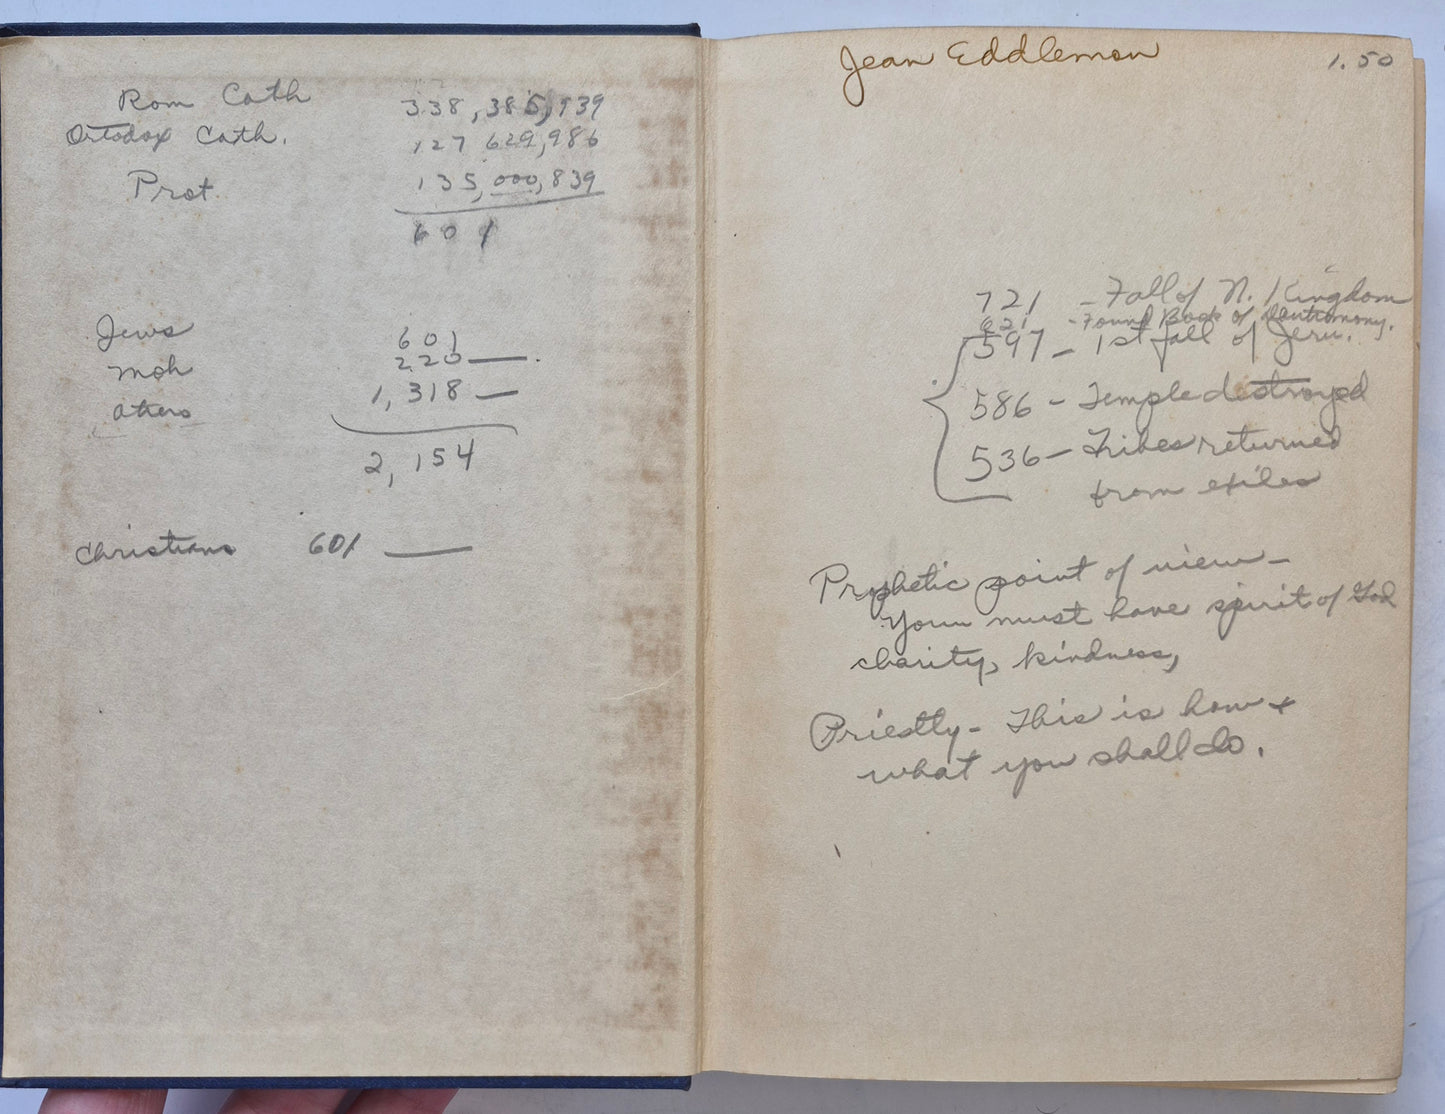 Rom Cath 338,385,939
Ortodox Cath. 127 629,986
Prot. 135,000,839
601
Jews 601
Moh 220
Others 1,318
2,154
Christians 601
Jean Eddlemon
1.50
721 - Fall of N. Kingdom
621 - Found Book of
597 - 1st fall of Jeru.
586 - Temple destroyed
536 - Tribes returned
from exiles
Prophetic point of view -
Your must have spirit of God
charity, kindness,
Priestly - This is how +
what you shall do.